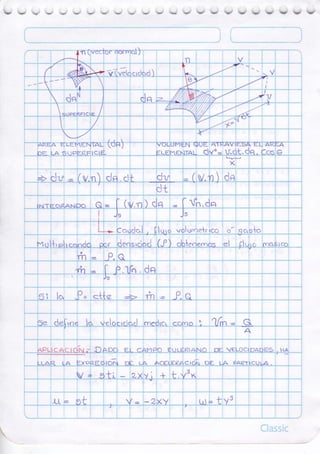 n (vector normal)
V (velocidad)
dA
SUPERFICIE
n
V
V
θ
dA
x = V.dt
AREA ELEMENTAL (dA)
DE LA SUPERFICIE
VOLUMEN QUE ATRAVIESA EL AREA
ELEMENTAL dV = V.dt.dA. Cos θ
x
=> dv = (V.n) dA.dt dv/dt = (V.n) dA
INTEGRANDO Q = ∫s (V.n) dA = ∫s Vn.dA
Caudal, flujo volumetrico o gasto
Multiplicando por densidad (ρ) obtenemos el flujo masico
ṁ = ρ.Q
ṁ = ∫s ρ.Vn.dA
Si la ρ = ctte => ṁ = ρ.Q
Se define la velocidad media como : Vm = Q/A
APLICACIÓN: DADO EL CAMPO EULERIANO DE VELOCIDADES, HA
LLAR LA EXPRESIÓN DE LA ACELERACIÓN DE LA PARTICULA.
V = 3ti - 2xyj + t.y³k
u = 3t , v = -2xy , w = ty³
Classic